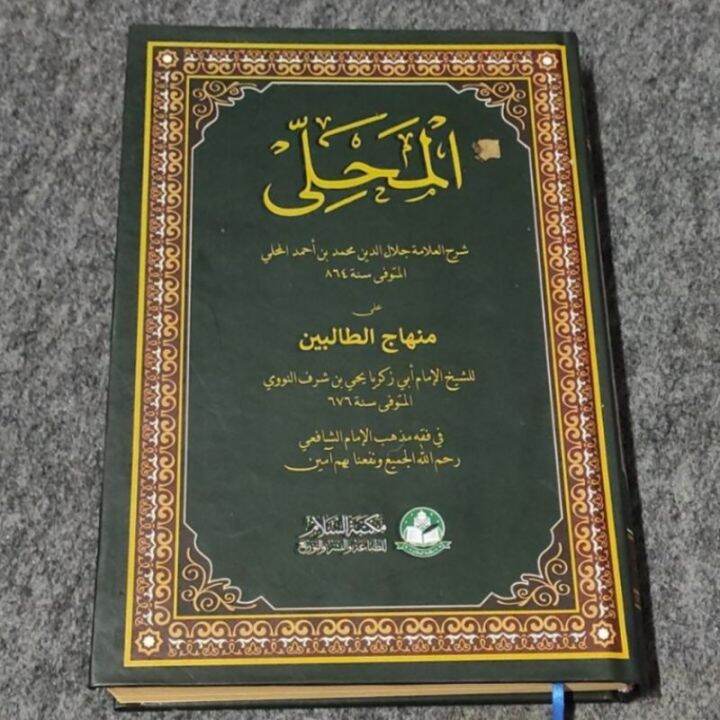 الْمَحَلِّى
شرح العلامة جلال الدين محمد بن أحمد المحلي
المتوفى سنة ٨٦٤
على
منهاج الطالبين
للشيخ الإمام أبي زكريا يحيى بن شرف النووي
المتوفى سنة ٦٧٦
في فقه مذهب الإمام الشافعي
رحم الله الجميع ونفعنا بهم آمين
مكتبة السلام
للطباعة والنشر والتوزيع